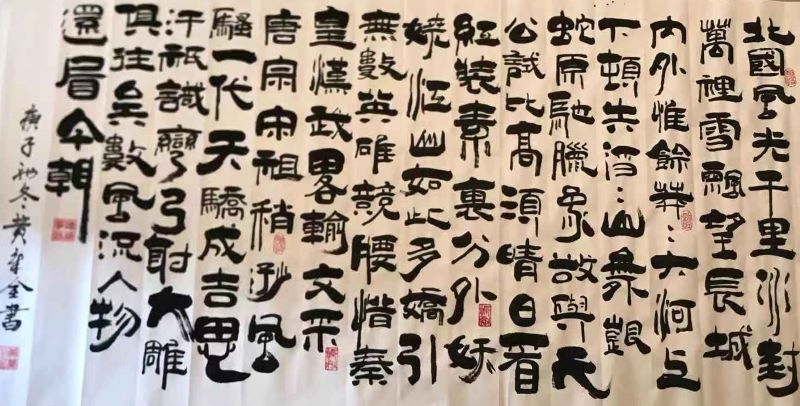 北國風光千里冰封
萬裡雪飄望長城
内外惟餘莽〻大河上
下頓失滔〻山舞銀
蛇原馳臘象欲與天
公試比高須晴日看
紅裝素裏分外妖
嬈江山如此多嬌引
無數英雄競腰惜秦
皇漢武略輸文采
唐宗宋祖稍遜風
騷一代天驕成吉思
汗祇識彎弓射大雕
俱往矣數風流人物
還看今朝
庚子初冬黄全書